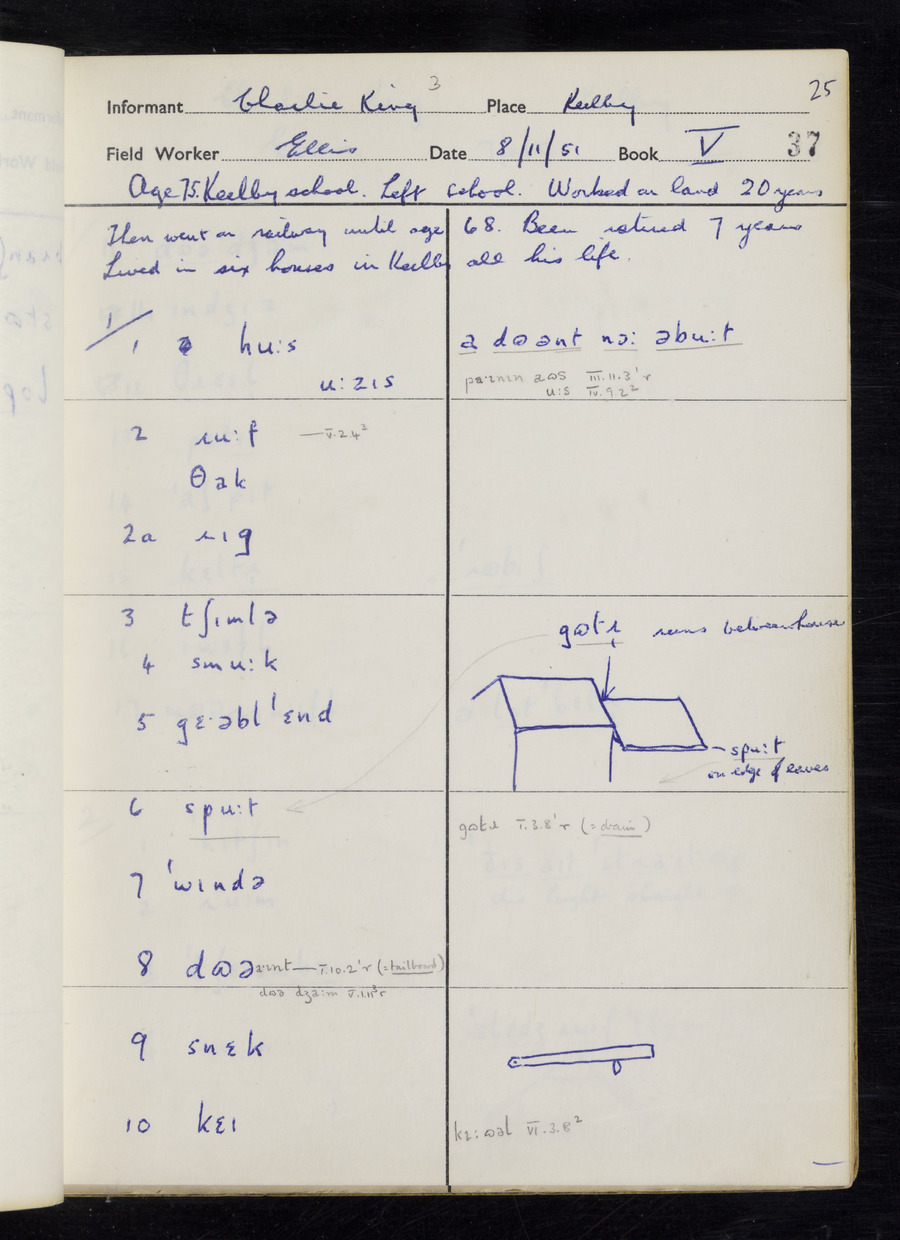 25
Informant Charlie King 3 Place Keelby
Field Worker Ellis Date 8/11/51 Book V 37
Age 75. Keelby school. Left school. Worked on land 20 years
Then went on railway until age 68. Been retired 7 years
Lived in six houses in Keelby all his life.
1/
1 hu:s
ə dɷənt nɔ: əbu:t
u:zɪs
III.11.3'r
u:s IV.9.2²
2 ɹu:f — V.2.4³
θak
2a ɹɪg
3 tʃɪmlə
gɷtɹ runs between house
4 smu:k
5 gɛ·əbl'ɛnd
spu:t
on edge of eaves
6 spu:t
gɷtɹ I.3.8'r (= drain)
7 'wɪndə
8 dɷə
— I.10.2'r (= tailboard)
9 snɛk
10 kɛɪ
VI.3.8²